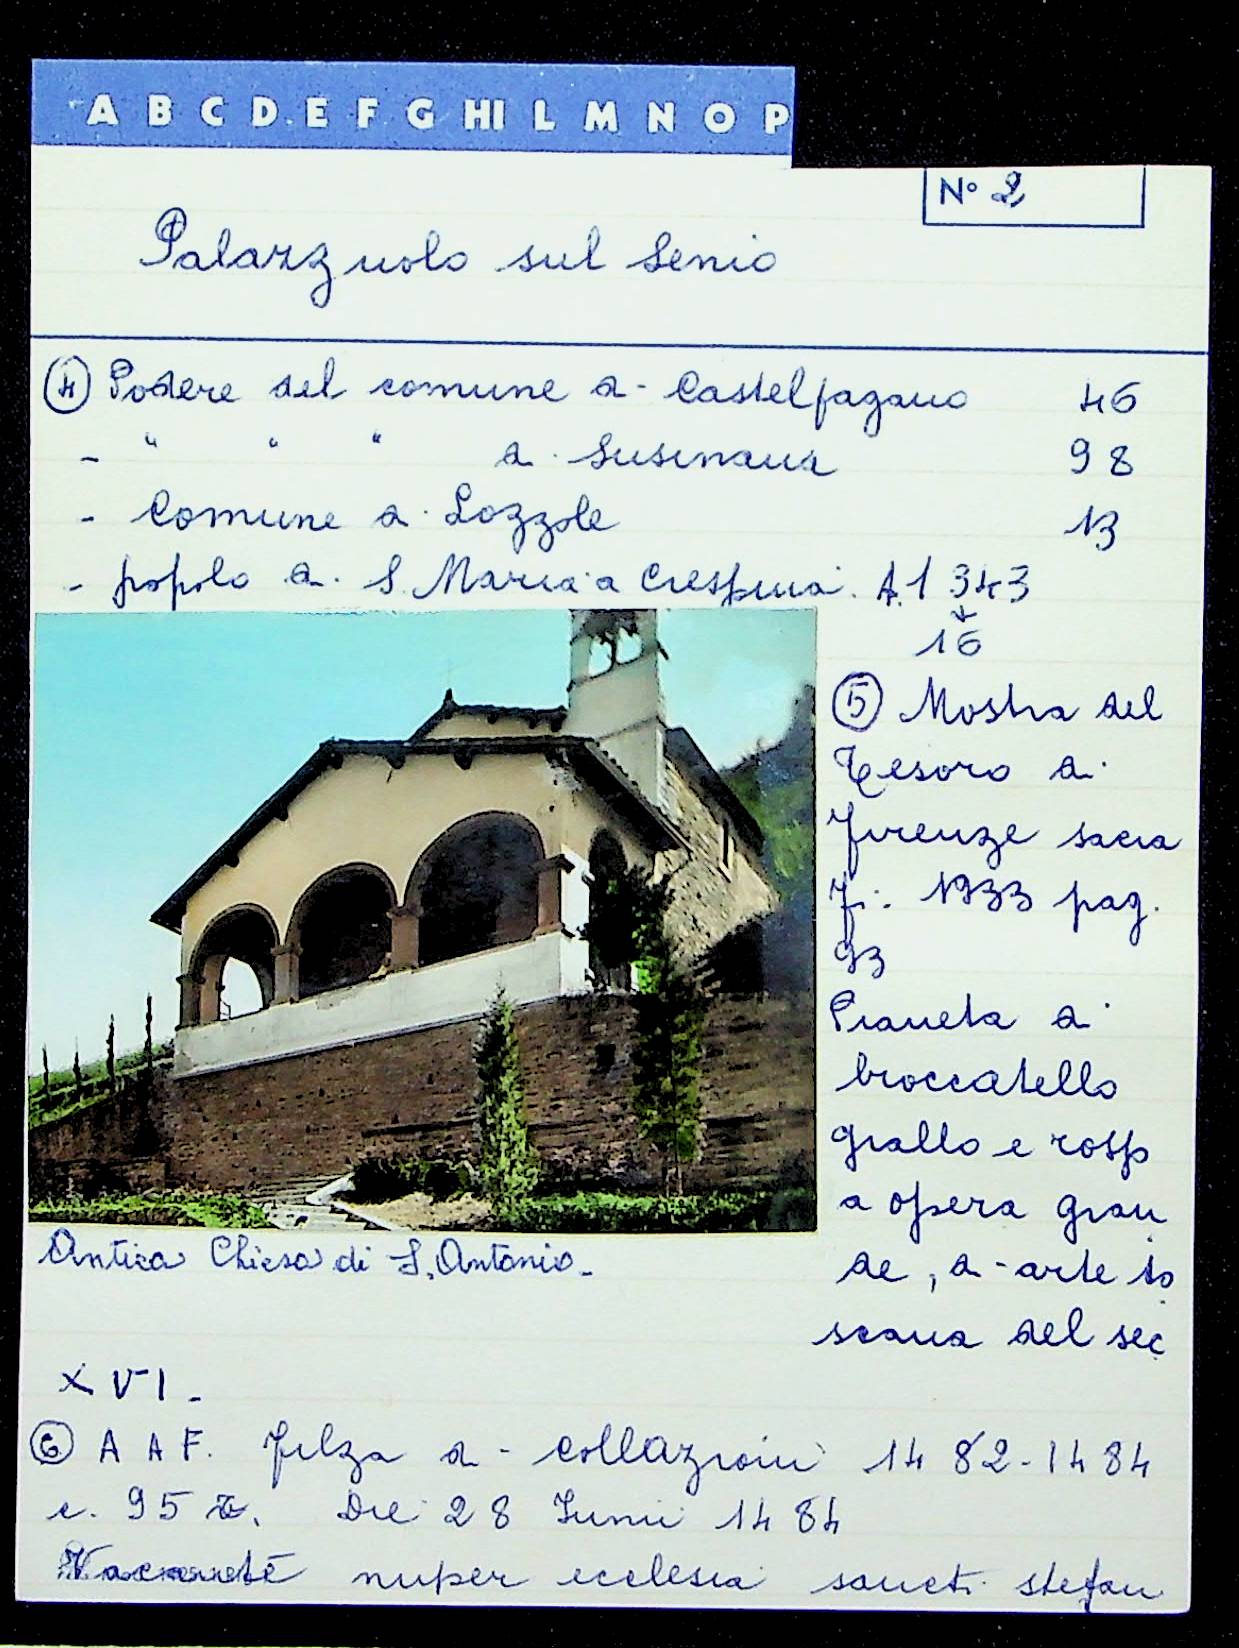 A B C D E F G HI L M N O P
N° 2
Palazzuolo sul Senio
④ Podere del comune di Castelpagano 46
- " " " di Susinana 98
- Comune di Lozzole 13
- popolo di S. Maria a Crespino. A. 1343
16
⑤ Mostra del
Tesoro di
Firenze sacra
Fi. 1933 pag.
93
Pianeta di
broccatello
giallo e rosso
a opera gran
de, di arte to
scana del sec
Antica Chiesa di S. Antonio.
XVI.
⑥ A A F. filza di collazioni 1482-1484
c. 95 Die 28 Iunii 1484
Vacante nuper ecclesia sancti stefan